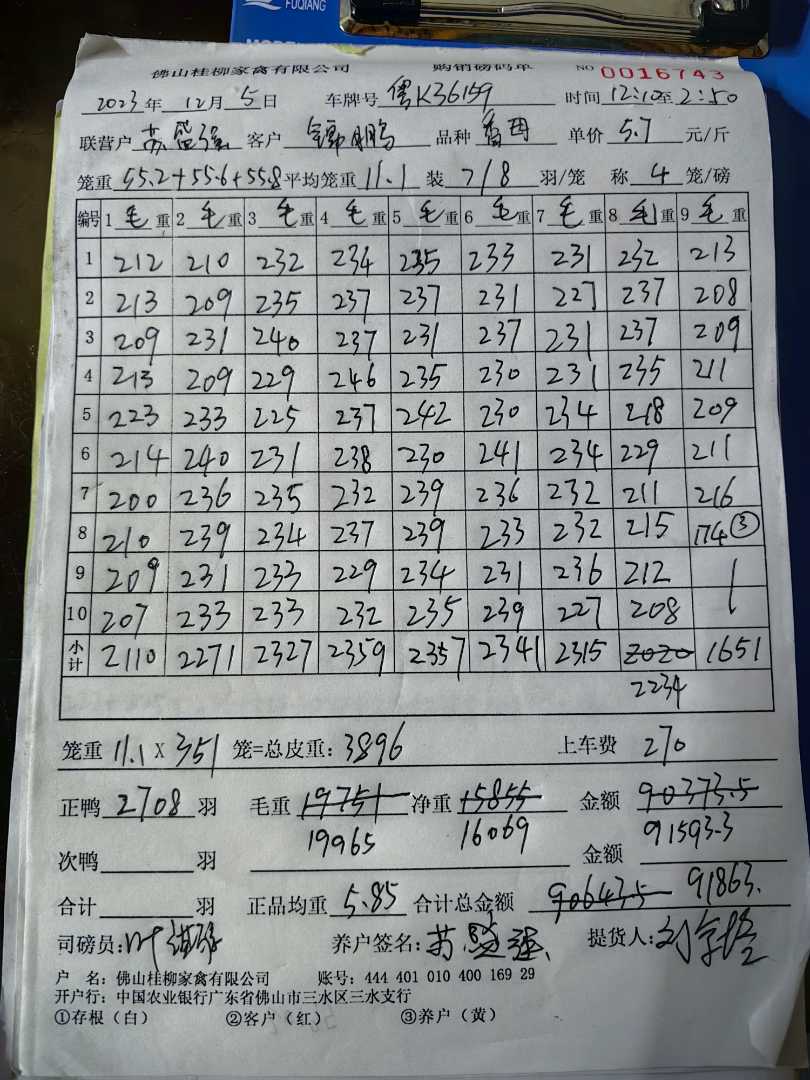 FUQIANG
佛山桂柳家禽有限公司 购销磅码单 NO 0016743
2023年 12月 5日 车牌号 粤K36159 时间 12:10至 2:50
联营户 苏盛强 客户 锦鹏 品种 单价 5.7 元/斤
笼重 55.2+55.6+55.8 平均笼重 11.1 装 7/8 羽/笼 称 4 笼/磅
编号 1 毛 重 2 毛 重 3 毛 重 4 毛 重 5 毛 重 6 毛 重 7 毛 重 8 毛 重 9 毛 重
1 212 210 232 234 235 233 231 232 213
2 213 209 235 237 237 231 227 237 208
3 209 231 240 237 231 237 231 237 209
4 213 209 229 246 235 230 231 235 211
5 223 233 225 237 242 230 234 218 209
6 214 240 231 238 230 241 234 229 211
7 200 236 235 232 239 236 232 211 216
8 210 239 234 237 239 233 232 215 174 ③
9 209 231 233 229 234 231 236 212
10 207 233 233 232 235 239 227 208
小计 2110 2271 2327 2359 2357 2341 2315 2020 1651
2234
笼重 11.1 X 351 笼=总皮重: 3896 上车费 270
正鸭 2708 羽 毛重 19751 净重 15855 金额 90373.5
19965 16069 91593.3
次鸭 羽 金额
合计 羽 正品均重 5.85 合计总金额 90643.5 91863.
司磅员: 叶 养户签名: 苏盛强 提货人: 刘
户 名: 佛山桂柳家禽有限公司 账号: 444 401 010 400 169 29
开户行: 中国农业银行广东省佛山市三水区三水支行
①存根（白） ②客户（红） ③养户（黄）